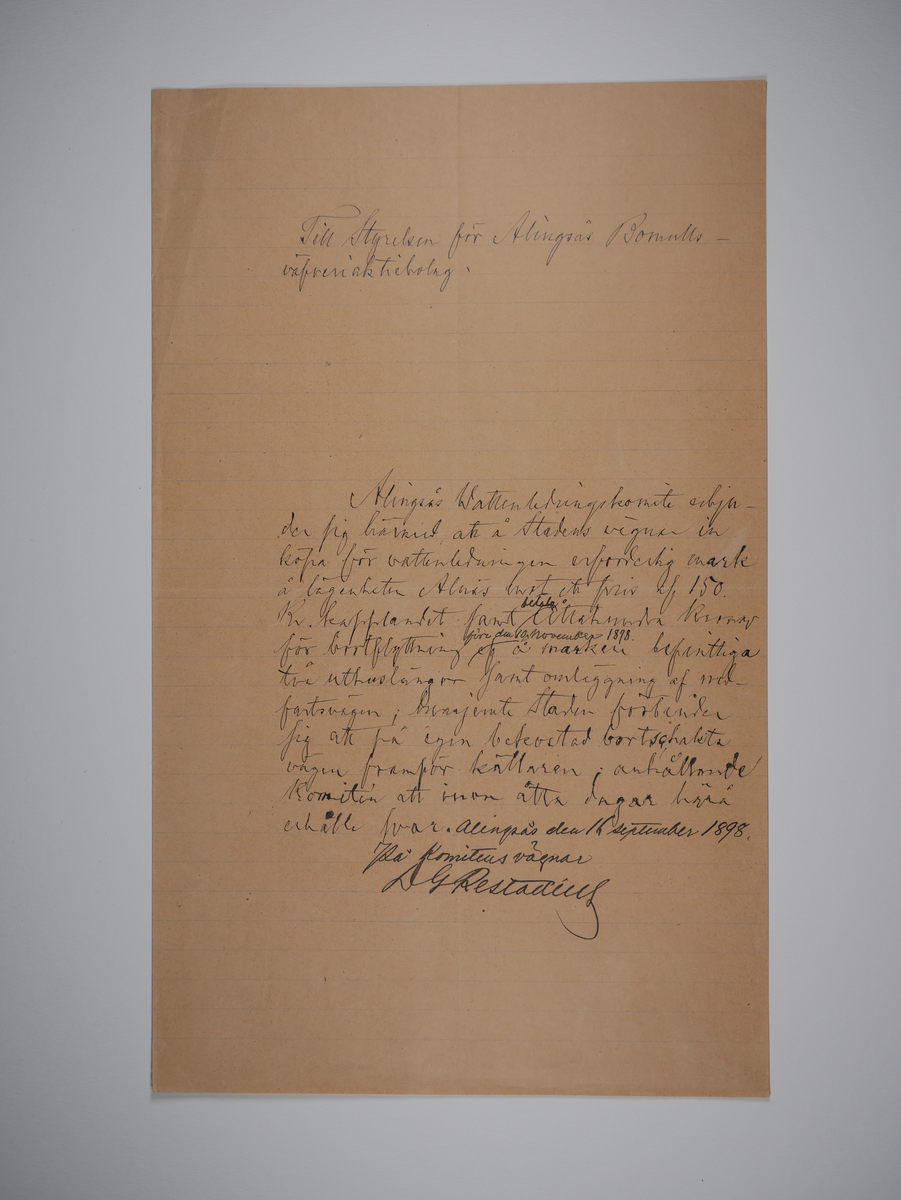 Till Styrelsen för Alingsås Bomulls-
väfveriaktiebolag.
Alingsås Wattenledningskomite erbju-
der sig härmed att å Stadens vägnar in
köpa för vattenledningen erforderlig mark
å lägenheten Alnäs mot ett pris af 150.
Kr. kapplandet samt betala Åttahundra Kronor
för bortflyttning före den 10 November 1898. af å marken befintliga
två uthuslängor samt omläggning af ned-
fartsvägen; hvarjemte Staden förbinder
sig att på egen bekostad bortschakta
vägen framför källaren; anhållande
Komitén att inom åtta dagar härå
erhålla svar. Alingsås den 16 september 1898.
På Komitens vägnar
D G Restadius